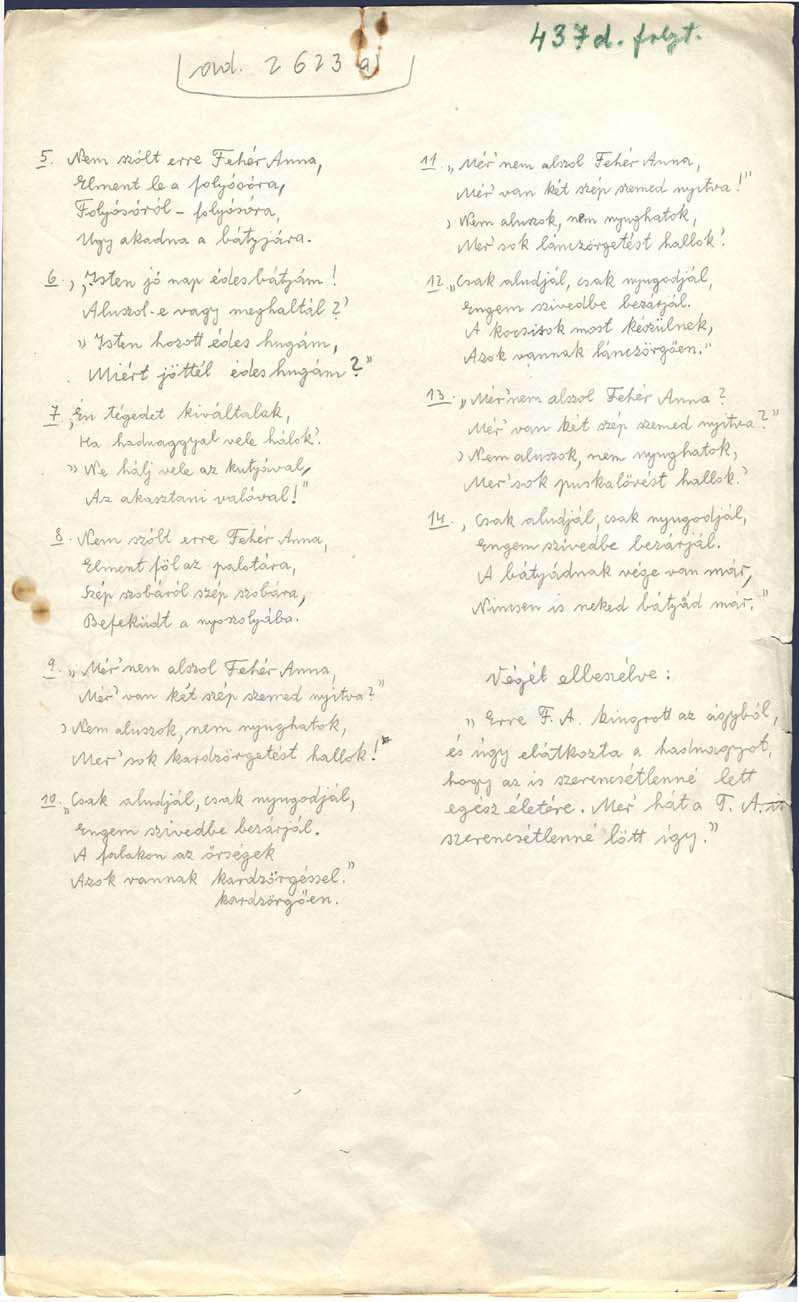 ad. 2623 a)
437d. folyt.
5. Nem szólt erre Fehér Anna,
Elment le a folyósóra,
Folyósóról – folyósóra,
Ugy akadna a bátyjára.
6. ‚Isten jó nap édes bátyám!
Aluszol-e vagy meghaltál?’
"Isten hozott édes hugám,
Miért jöttél édes hugám?"
7. ‚Én tégedet kiváltalak,
Ha hadnaggyal vele hálok’.
"Ne hálj vele az kutyával,
Az akasztani valóval!"
8. Nem szólt erre Fehér Anna,
Elment föl az palotára,
Szép szobáról szép szobára,
Befeküdt a nyoszolyába.
9. „Mér’ nem alszol Fehér Anna,
Mér’ van két szép szemed nyitva?"
‚Nem aluszok, nem nyughatok,
Mer’ sok kardzörgetést hallok!’
10. „Csak aludjál, csak nyugodjál,
Engem szivedbe bezárjál.
A falakon az őrségek
Azok vannak kardzörgéssel."
kardzörgően.
11. „Mér’ nem alszol Fehér Anna,
Mér’ van két szép szemed nyitva!"
‚Nem aluszok, nem nyughatok,
Mer’ sok lánczörgetést hallok’.
12. „Csak aludjál, csak nyugodjál,
Engem szivedbe bezárjál.
A kocsisok most készülnek,
Azok vannak lánczörgően."
13. „Mér’ nem alszol Fehér Anna?
Mér’ van két szép szemed nyitva?"
‚Nem aluszok, nem nyughatok,
Mer’ sok puskalövést hallok.’
14. „Csak aludjál, csak nyugodjál,
Engem szivedbe bezárjál.
A bátyádnak vége van már,
Nincsen is neked bátyád már."
Végét elbeszélve:
„Erre F. A. kiugrott az ágyból,
és úgy elátkozta a hadnagyot,
hogy az is szerencsétlenné lett
egész életére. Mer’ hát a F. A.
szerencsétlenné lött így."